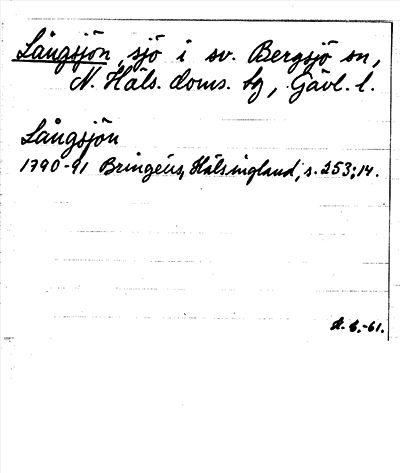 Långsjön, sjö i sv. Bergsjö sn,
N. Häls. doms. tg, Gävl. l.
Långsjön
1790-91 Bringéus, Hälsingland, s. 253; 14.
-61.